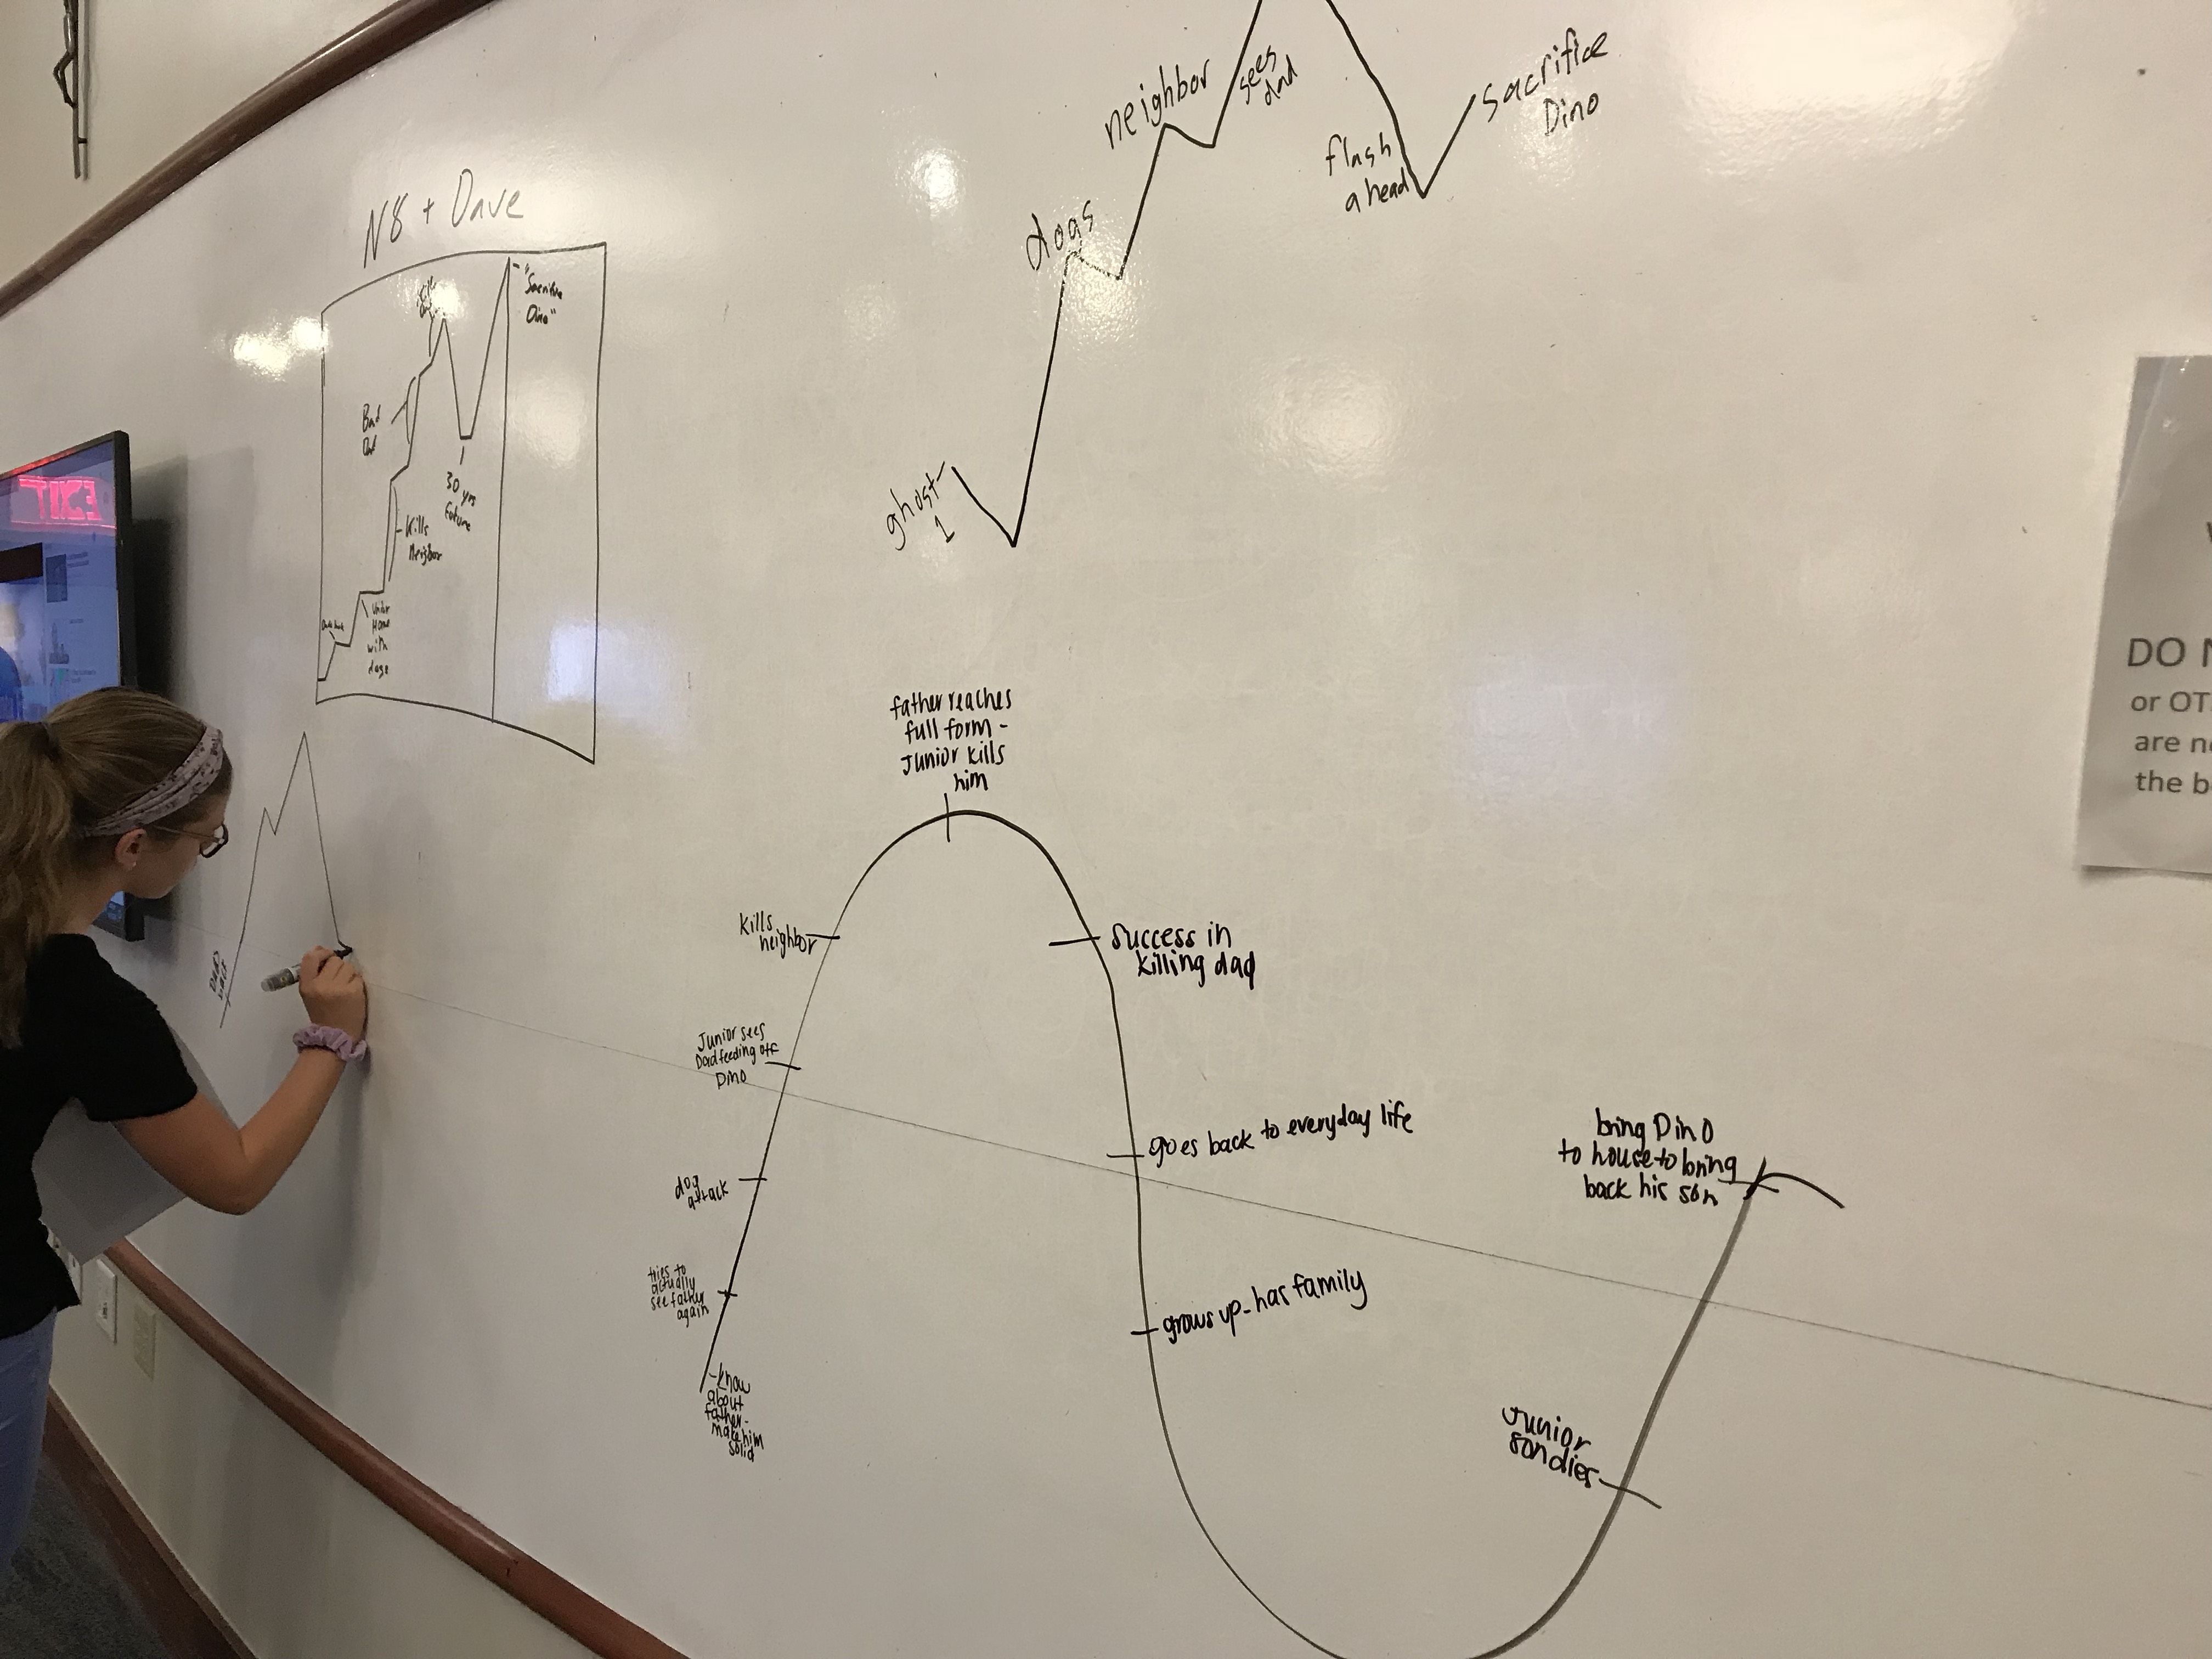 N8 + Dave
"Sacrifice
Dino"
30 yrs
future
Kills
Neighbor
Under
Home
with
dogs
ghost
1
dogs
neighbor
sees
dad
flash
ahead
sacrifice
Dino
father reaches
full form -
Junior kills
him
kills
neighbor
Junior sees
Dad feeding off
Dino
dog
attack
tries to
actually
see father
again
-know
about
father-
make him
solid
success in
killing dad
goes back to everyday life
grows up - has family
Junior
son dies
bring Dino
to house to bring
back his son
EXIT
DO N
or OT
are n
the b